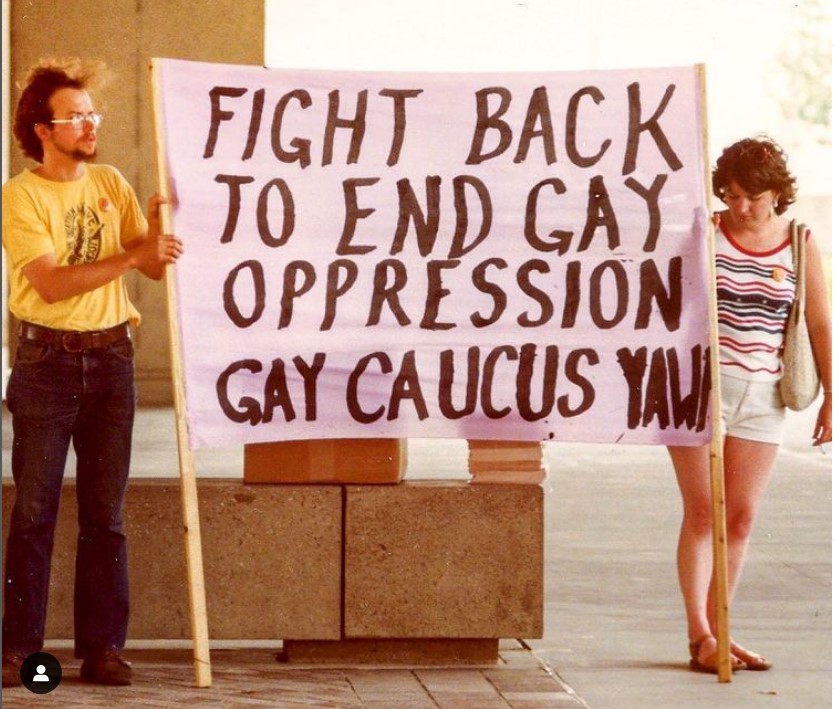 FIGHT BACK
TO END GAY
OPPRESSION
GAY CAUCUS YAWF